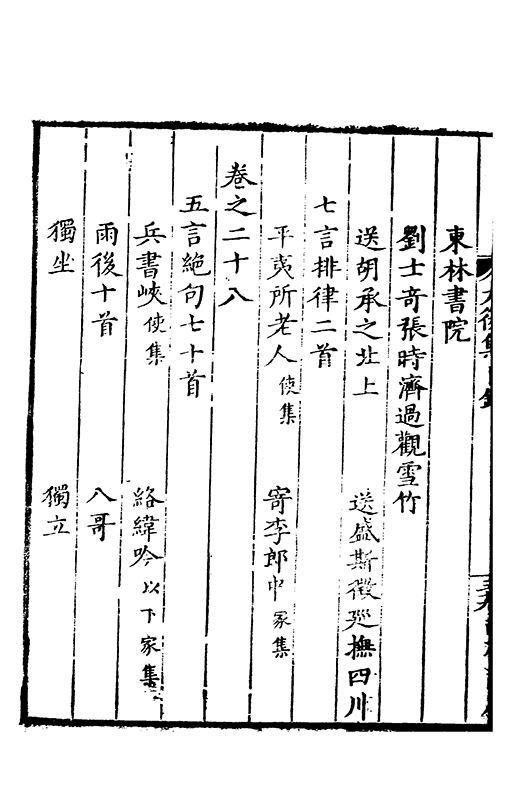 東林書院
劉士奇張時濟過觀雪竹
送胡承之北上　送盛斯徵廵撫四川
七言排律二首
平夷所老人使集　寄李郎中家集
卷之二十八
五言絕句七十首
兵書峽使集　絡緯吟以下家集
雨後十首　八哥
獨坐　獨立